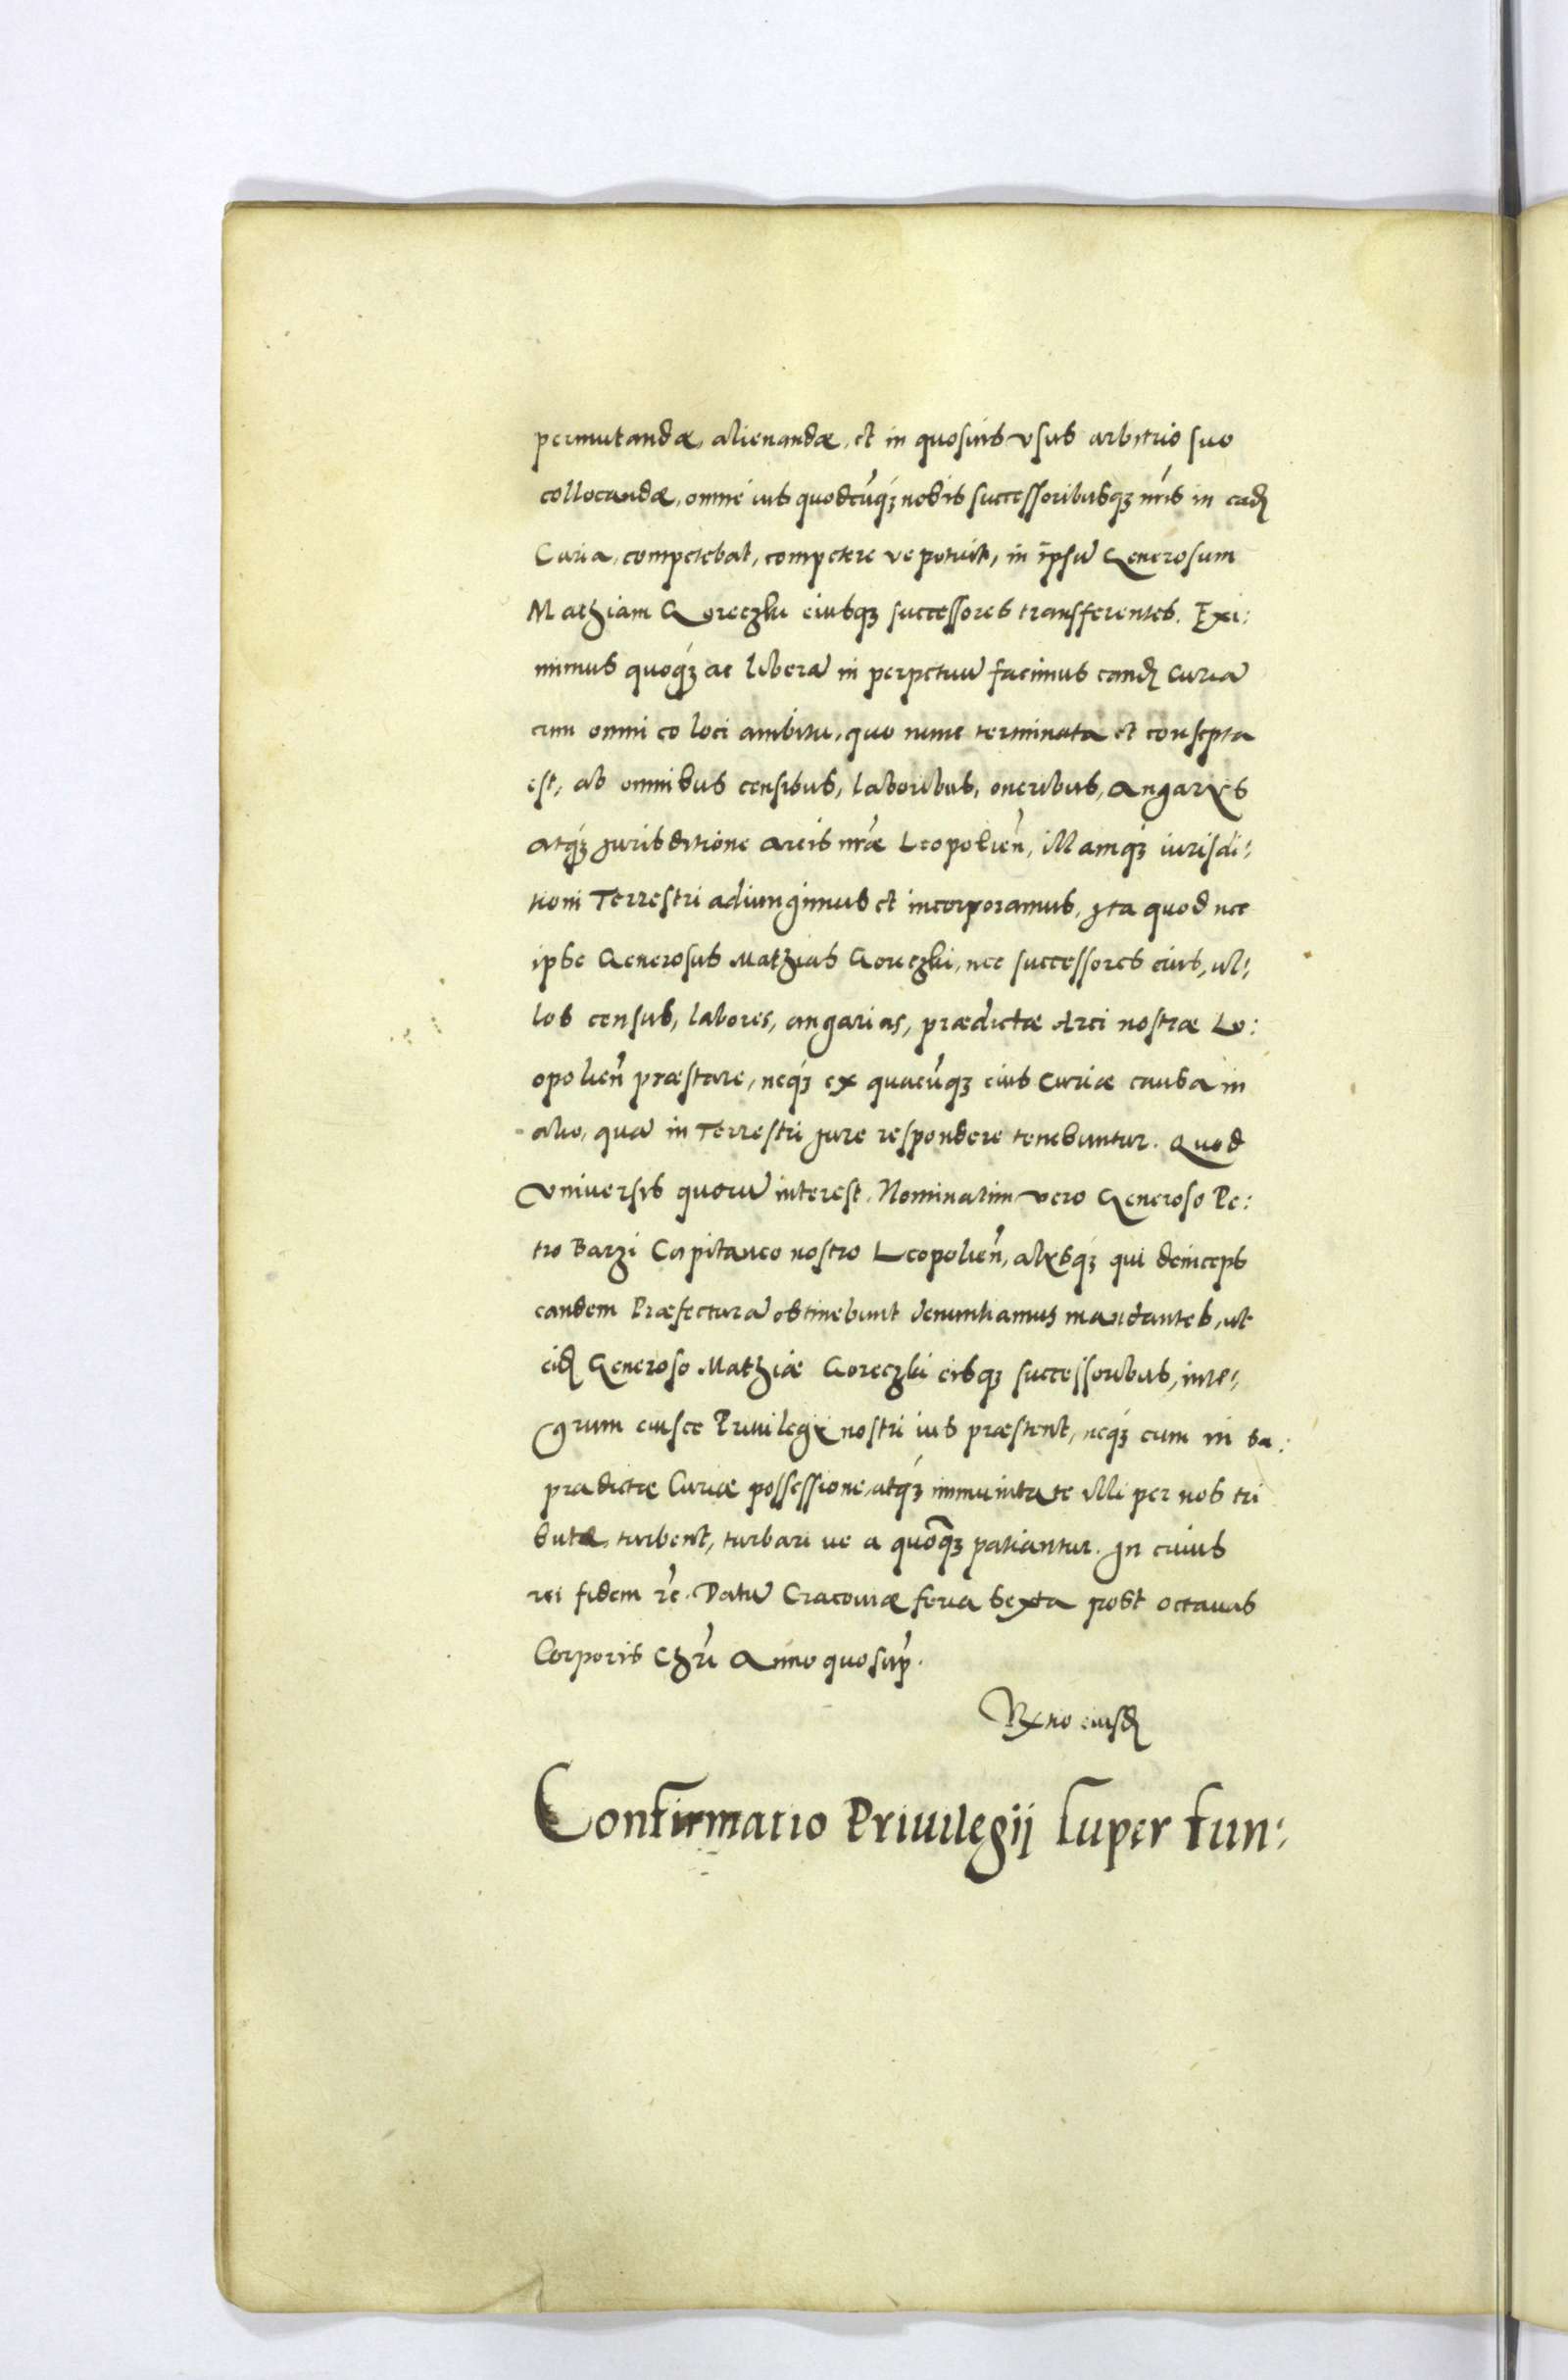 permutandæ, alienandæ, et in quosuis vsus arbitrio suo
collocandæ, omne ius quodcūq₃ nobis successoribusq₃ nr̃is in ead̃
Curia, competebat, competere ve potuit, in ipsū Generosum
Mathiam Goreczki eiusq₃ successores transferentes. Exi:
mimus quoq₃ ac liberā in perpetuū facimus eand̃ Curiā
cum omni eo loci ambitu, quo nunc terminata et consepta
est, ab omnibus censibus, laboribus, oneribus, Angarijs
atq₃ Jurisditione arcis nr̃æ Leopolien̄, illamq₃ iurisdi:
tioni Terrestri adiungimus et incorporamus, Jta quod nec
ipse Generosus Mathias Goreczki, nec successores eius, ul:
los census, labores, angarias, prædictæ Arci nostræ Le:
opolien̄ præstare, neq₃ ex quacūq₃ eius Curiæ causa in
alio, quā in Terrestri Jure respondere tenebuntur. Quod
Vniuersis quorū interest. Nominatim vero Generoso Pe:
tro Barzi Capitaneo nostro Leopolien̄, alijsq₃ qui deinceps
eandem Præfecturā obtinebunt denuntiamus mandantes, ut
eid̃ Generoso Mathiæ Goreczki eisq₃ successoribus, inte:
grum eiusce Priuilegij nostri ius præstent, neq₃ eum in ea:
prædictæ Curiæ possessione, atq₃ immunitate illi per nos tri
butæ, turbent, turbari ve a quoq₃ patiantur. Jn cuius
rei fidem rc̃. Datū Cracouiæ feria sexta post octauas
Corporis Chr̃i Anno quo sup̃.
Rx no eiusd̃
Confirmatio Priuilegij super fun: